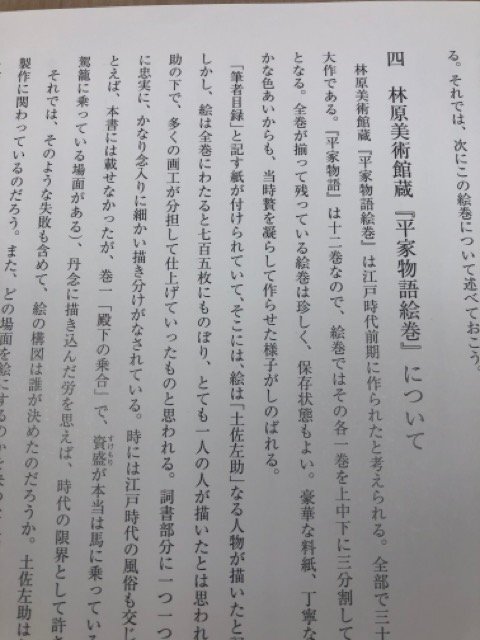 る。それでは、次にこの絵巻について述べておこう。
四 林原美術館蔵『平家物語絵巻』について
林原美術館蔵『平家物語絵巻』は江戸時代前期に作られたと考えられる。全部で三十
大作である。『平家物語』は十二巻なので、絵巻ではその各一巻を上中下に三分割して
となる。全巻が揃って残っている絵巻は珍しく、保存状態もよい。豪華な料紙、丁寧な
かな色あいからも、当時贅を凝らして作らせた様子がしのばれる。
「筆者目録」と記す紙が付けられていて、そこには、絵は「土佐左助」なる人物が描いたと
しかし、絵は全巻にわたると七百五枚にものぼり、とても一人の人が描いたとは思われ
助の下で、多くの画工が分担して仕上げていったものと思われる。詞書部分に一つ一つ
に忠実に、かなり念入りに細かい描き分けがなされている。時には江戸時代の風俗も交じ
とえば、本書には載せなかったが、巻一「殿下の乗合」で、資盛すけもりが本当は馬に乗ってい
駕籠に乗っている場面がある)、丹念に描き込んだ労を思えば、時代の限界として許さ
それでは、そのような失敗も含めて、絵の構図は誰が決めたのだろうか。土佐左助は
製作に関わっているのだろう。また、どの場面を絵にするのかを